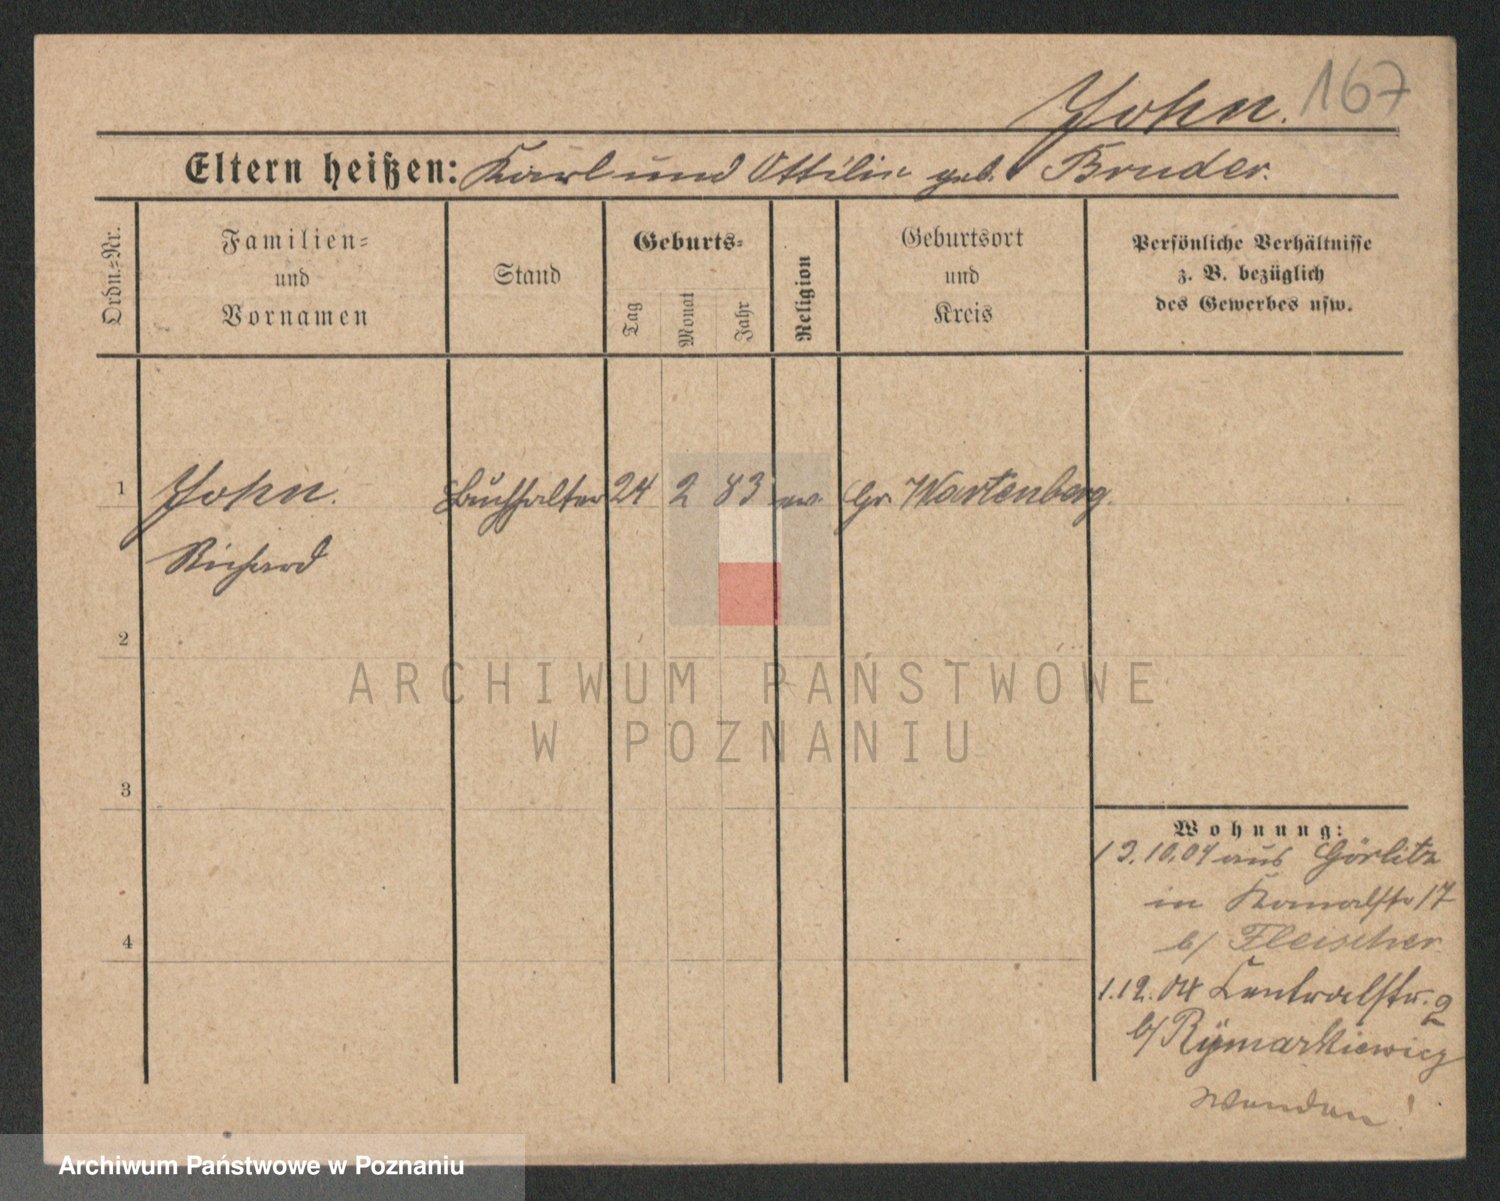 John. 167
Eltern heißen: Karl und Ottilie geb. Bruder.
Ordn.=Nr.
Familien=
und
Vornamen
Stand
Geburts=
Tag
Monat
Jahr
Religion
Geburtsort
und
Kreis
Persönliche Verhältnisse
z. B. bezüglich
des Gewerbes usw.
1 John. Buchhalter 24 2 83 ev. Gr. Wartenberg.
Richard
2
3
4
Wohnung:
13.10.04 aus Görlitz
in Kanalstr 17
b/ Fleischer
1.12.04 Centralstr. 2
b/ Rymarkiewicz
Wenden!
ARCHIWUM PAŃSTWOWE
W POZNANIU
Archiwum Państwowe w Poznaniu